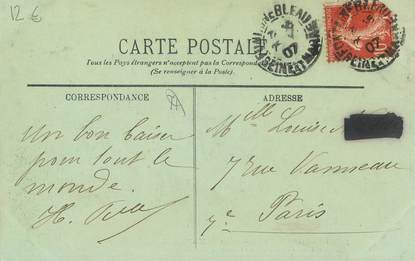 12 €
CARTE POSTALE
Tous les Pays étrangers n'acceptent pas la Correspondance
(Se renseigner à la Poste).
CORRESPONDANCE
ADRESSE
Un bon baiser
pour tout le
monde.
H.
Mlle Louise
7 rue Vanneau
7e Paris
07
07